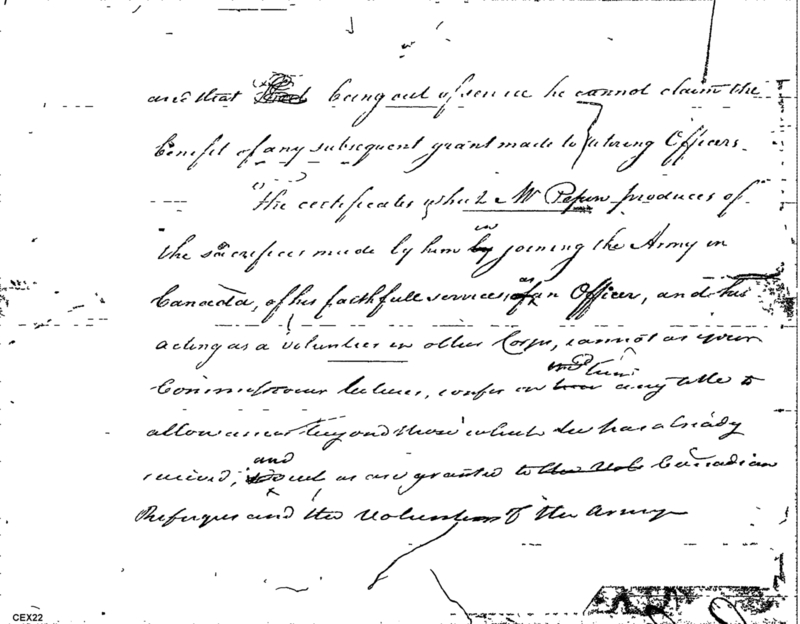 and that being out of service he cannot claim the
benefit of any subsequent grant made to retiring Officers.
The certificates which Mr Pepin produces of
the sacrifices made by him in joining the Army in
Canada, of his faithfull services, as an Officer, and his
acting as a volunteer in other Corps, cannot as your
Commissioners believe, confer on him any title to
allowances beyond those which he has already
recieved, and such as are granted to Canadian
Refugees and the Volunteers of the Army
CEX22